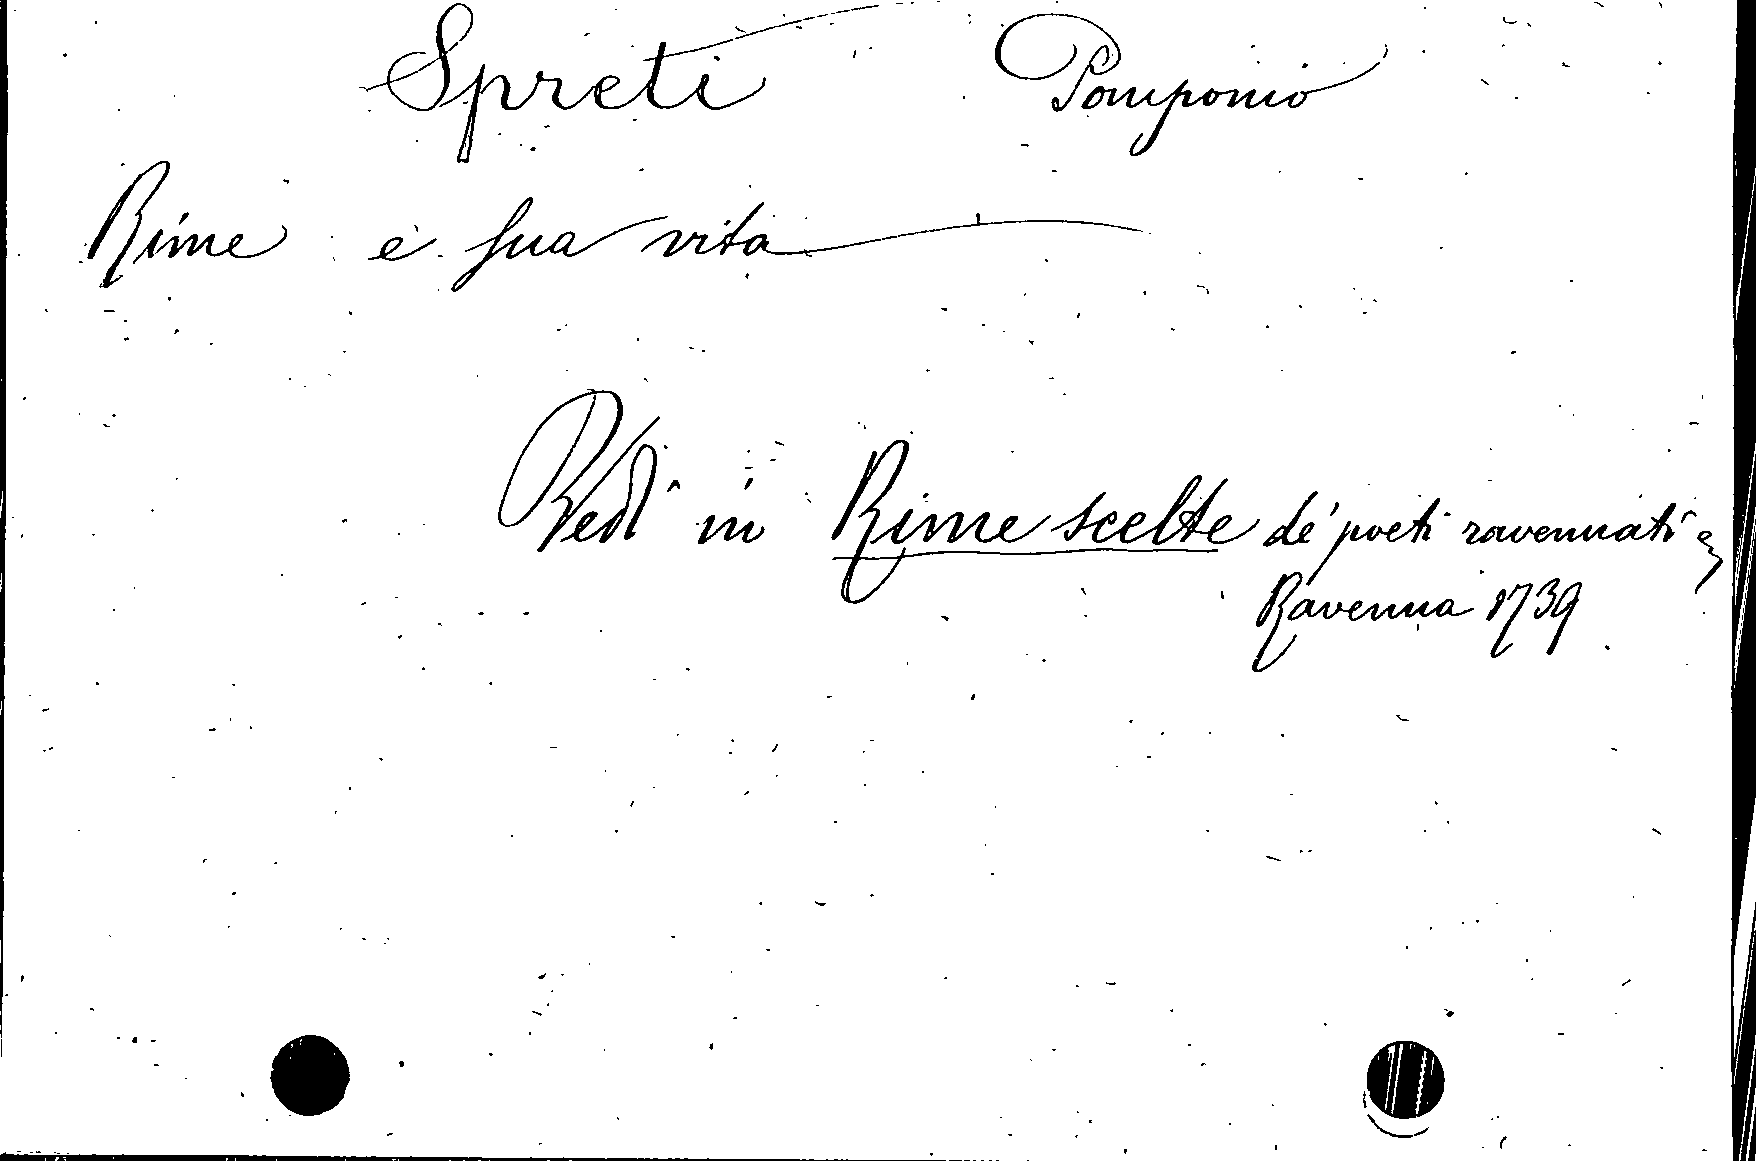 Spreti Pomponio
Rime e sua vita
Vedi in Rime scelte de' poeti ravennati
Ravenna 1739